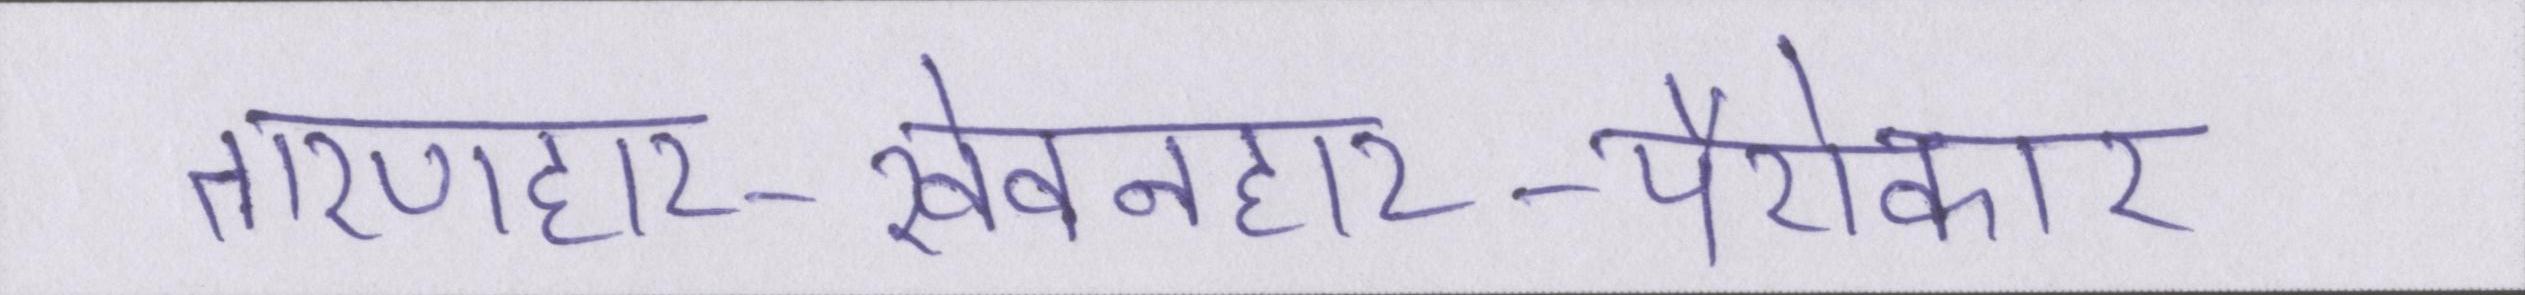 तारणहार-खेवनहार-पैरोकार